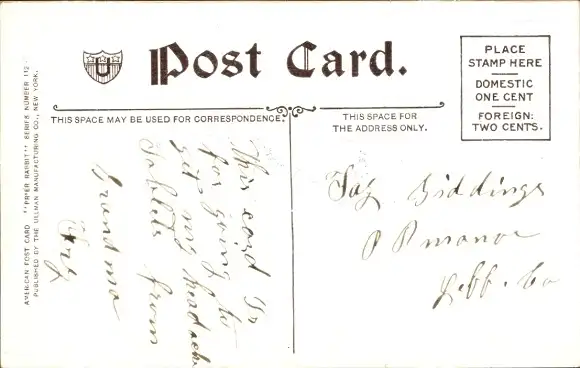 U
Post Card.
PLACE
STAMP HERE
DOMESTIC
ONE CENT
FOREIGN:
TWO CENTS.
THIS SPACE MAY BE USED FOR CORRESPONDENCE.
THIS SPACE FOR
THE ADDRESS ONLY.
AMERICAN POST CARD "BR'ER RABBIT" SERIES NUMBER 112.
PUBLISHED BY THE ULLMAN MANUFACTURING CO., NEW YORK.
This card is
for going to
get my headach
Tablets from
Grandma
Giddings
Jeff. Co